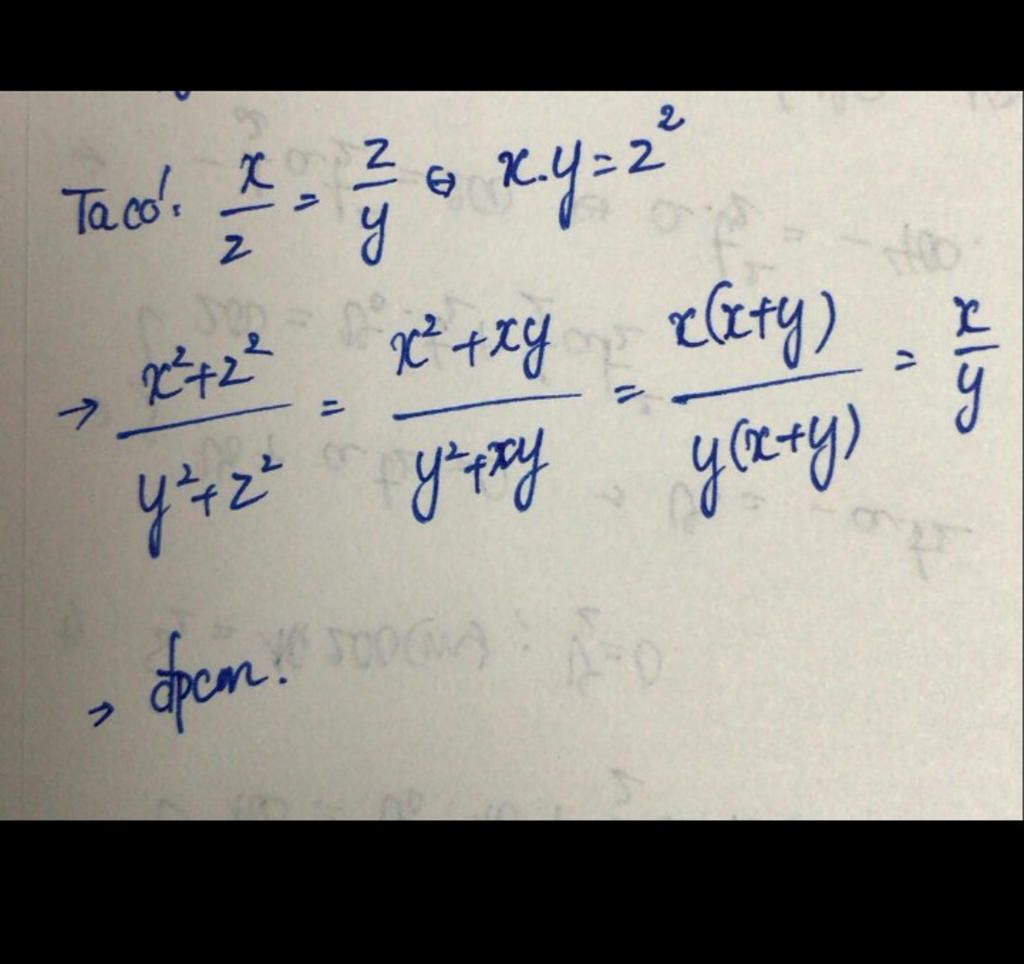 Ta có: x/z = z/y ⇔ x.y = z²
→ x²+z²/y²+z² = x²+xy/y²+xy = x(x+y)/y(x+y) = x/y
→ đpcm.